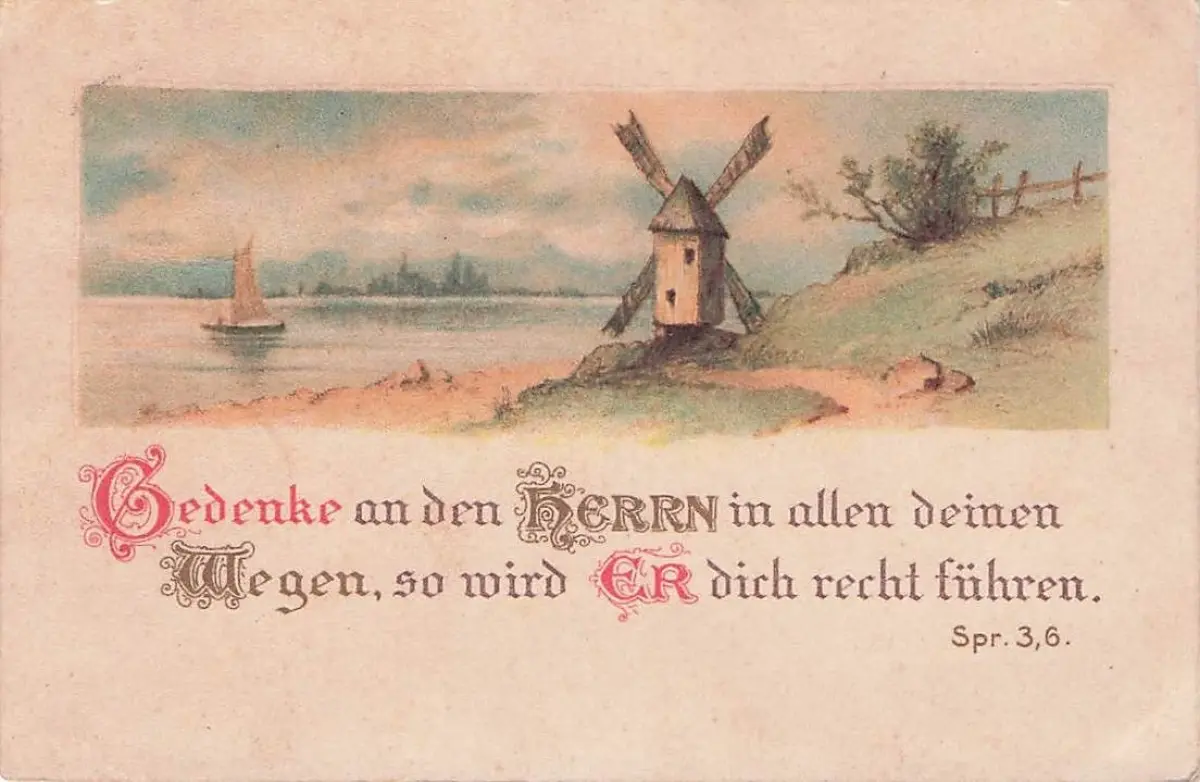 Gedenke an den HERRN in allen deinen
Wegen, so wird ER dich recht führen.
Spr. 3,6.